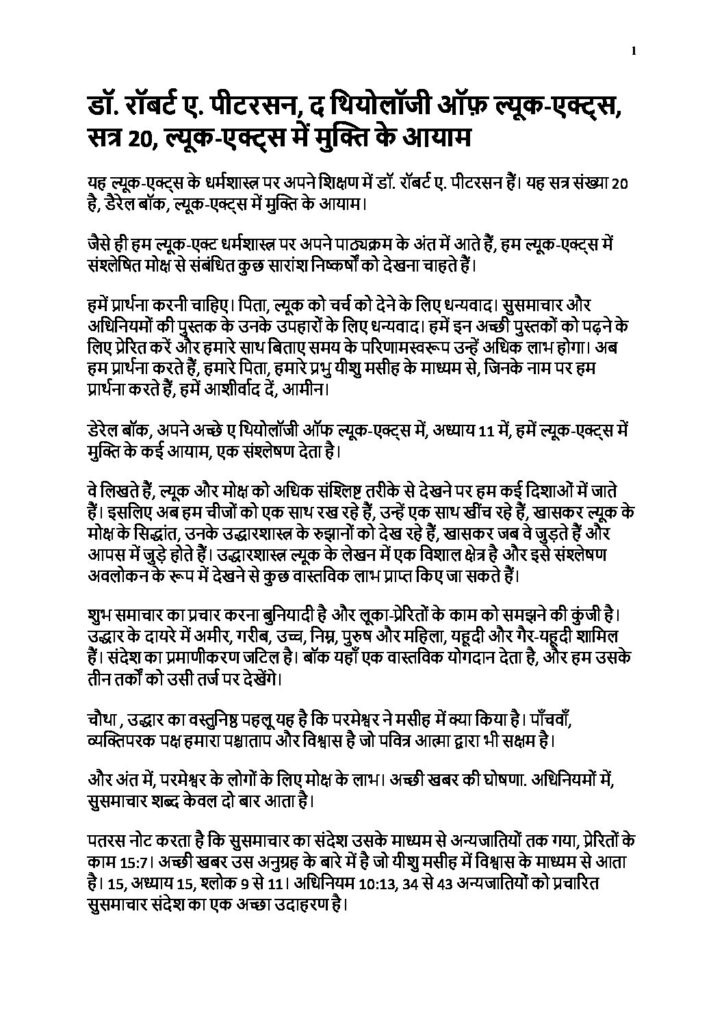 1
डॉ. रॉबर्ट ए. पीटरसन, द थियोलॉजी ऑफ़ ल्यूक-एक्ट्स,
सत्र 20, ल्यूक-एक्ट्स में मुक्ति के आयाम
यह ल्यूक-एक्ट्स के धर्मशास्त्र पर अपने शिक्षण में डॉ. रॉबर्ट ए. पीटरसन हैं। यह सत्र संख्या 20
है, डैरेल बॉक, ल्यूक-एक्ट्स में मुक्ति के आयाम।
जैसे ही हम ल्यूक-एक्ट धर्मशास्त्र पर अपने पाठ्यक्रम के अंत में आते हैं, हम ल्यूक-एक्ट्स में
संश्लेषित मोक्ष से संबंधित कुछ सारांश निष्कर्षों को देखना चाहते हैं।
हमें प्रार्थना करनी चाहिए। पिता, ल्यूक को चर्च को देने के लिए धन्यवाद। सुसमाचार और
अधिनियमों की पुस्तक के उनके उपहारों के लिए धन्यवाद। हमें इन अच्छी पुस्तकों को पढ़ने के
लिए प्रेरित करें और हमारे साथ बिताए समय के परिणामस्वरूप उन्हें अधिक लाभ होगा। अब
हम प्रार्थना करते हैं, हमारे पिता, हमारे प्रभु यीशु मसीह के माध्यम से, जिनके नाम पर हम
प्रार्थना करते हैं, हमें आशीर्वाद दें, आमीन।
डेरेल बॉक, अपने अच्छे ए थियोलॉजी ऑफ ल्यूक-एक्ट्स में, अध्याय 11 में, हमें ल्यूक-एक्ट्स में
मुक्ति के कई आयाम, एक संश्लेषण देता है।
वे लिखते हैं, ल्यूक और मोक्ष को अधिक संश्लिष्ट तरीके से देखने पर हम कई दिशाओं में जाते
हैं। इसलिए अब हम चीजों को एक साथ रख रहे हैं, उन्हें एक साथ खींच रहे हैं, खासकर ल्यूक के
मोक्ष के सिद्धांत, उनके उद्धारशास्त्र के रुझानों को देख रहे हैं, खासकर जब वे जुड़ते हैं और
आपस में जुड़े होते हैं। उद्धारशास्त्र ल्यूक के लेखन में एक विशाल क्षेत्र है और इसे संश्लेषण
अवलोकन के रूप में देखने से कुछ वास्तविक लाभ प्राप्त किए जा सकते हैं।
शुभ समाचार का प्रचार करना बुनियादी है और लूका-प्रेरितों के काम को समझने की कुंजी है।
उद्धार के दायरे में अमीर, गरीब, उच्च, निम्न, पुरुष और महिला, यहूदी और गैर-यहूदी शामिल
हैं। संदेश का प्रमाणीकरण जटिल है। बॉक यहाँ एक वास्तविक योगदान देता है, और हम उसके
तीन तर्कों को उसी तर्ज पर देखेंगे।
चौथा , उद्धार का वस्तुनिष्ठ पहलू यह है कि परमेश्वर ने मसीह में क्या किया है। पाँचवाँ,
व्यक्तिपरक पक्ष हमारा पश्चाताप और विश्वास है जो पवित्र आत्मा द्वारा भी सक्षम है।
और अंत में, परमेश्वर के लोगों के लिए मोक्ष के लाभ। अच्छी खबर की घोषणा. अधिनियमों में,
सुसमाचार शब्द केवल दो बार आता है।
पतरस नोट करता है कि सुसमाचार का संदेश उसके माध्यम से अन्यजातियों तक गया, प्रेरितों के
काम 15:7। अच्छी खबर उस अनुग्रह के बारे में है जो यीशु मसीह में विश्वास के माध्यम से आता
है। 15, अध्याय 15, श्लोक 9 से 11। अधिनियम 10:13, 34 से 43 अन्यजातियों को प्रचारित
सुसमाचार संदेश का एक अच्छा उदाहरण है।